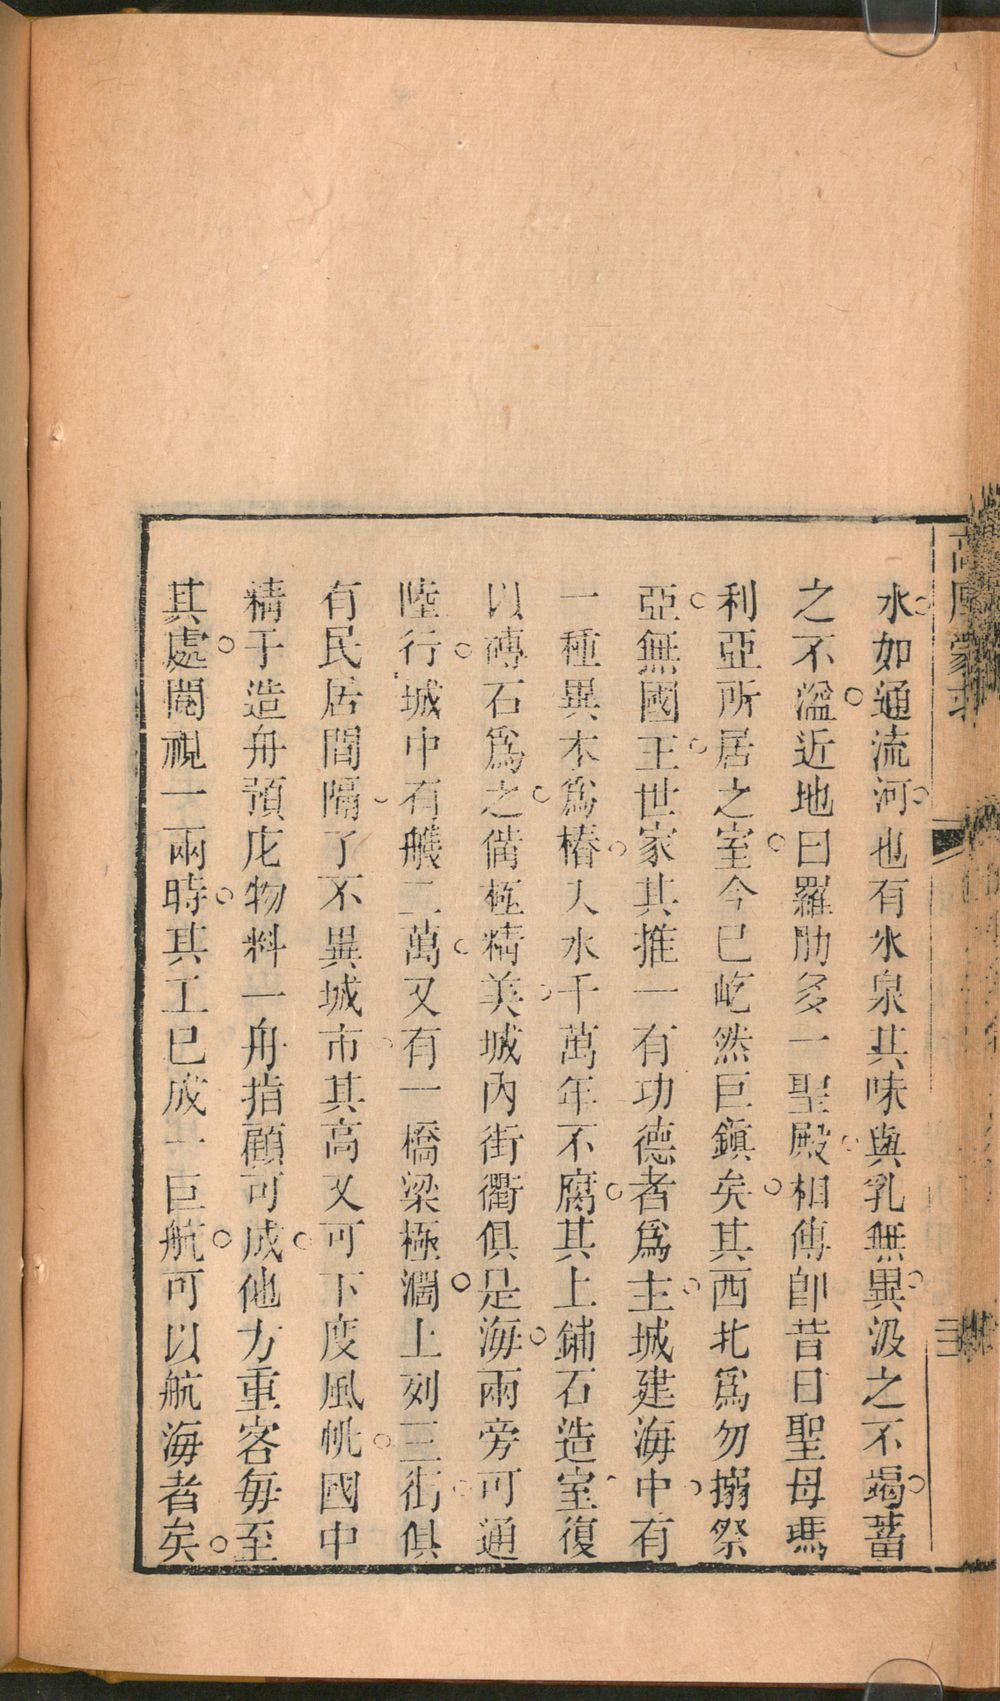 水如通流河也有氷泉其味與乳無異汲之不竭蓄
之不溢近地曰羅肋多一聖殿相傳卽昔日聖母瑪
利亞所居之室今已屹然巨鎮矣其西北爲勿搦祭
亞無國王世家其推一有功德者爲主城建海中有
一種異木爲樁入水千萬年不腐其上鋪石造室復
以磚石爲之備極精美城內街衢俱是海兩旁可通
陸行城中有艤二萬又有一橋梁極濶上列三街俱
有民居間隔了不異城市其高又可下度風帆國中
精于造舟預庀物料一舟指顧可成他方重客每至
其處閱視一兩時其工已成一巨航可以航海者矣
三